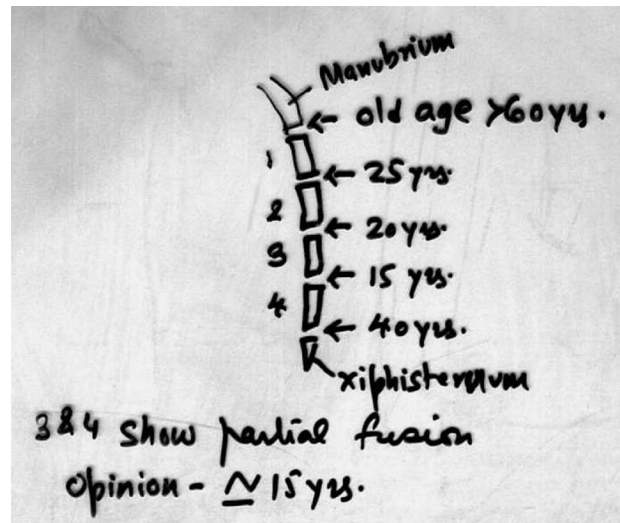 Manubrium
← old age >60 yrs.
1
← 25 yrs.
2
← 20 yrs.
3
← 15 yrs.
4
← 40 yrs.
xiphisternum
3 & 4 show partial fusion
opinion - ≃ 15 yrs.